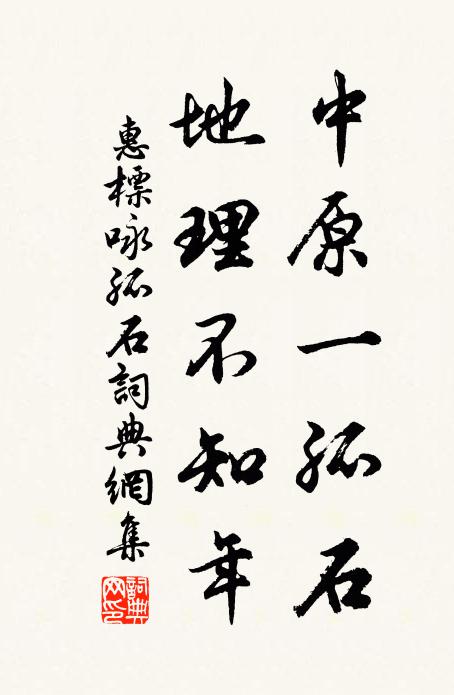 中原一孤石
地理不知年
惠標咏孤石詞典網集
詞典網印